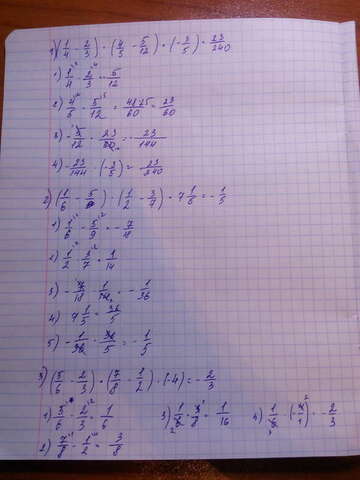 1) (1/4 - 2/3) · (4/5 - 5/12) · (-3/5) = 23/240
1) 1/4 - 2/3 = -5/12
2) 4/5 - 5/12 = 48-25/60 = 23/60
3) -5/12 · 23/60 = -23/144
4) -23/144 · (-3/5) = 23/240
2) (1/6 - 5/9) · (1/2 - 3/7) · 7 1/5 = -1/5
1) 1/6 - 5/9 = -7/18
2) 1/2 - 3/7 = 1/14
3) -7/18 · 1/14 = -1/36
4) 7 1/5 = 36/5
5) -1/36 · 36/5 = -1/5
3) (5/6 - 2/3) · (7/8 - 1/2) · (-4) = -2/3
1) 5/6 - 2/3 = 1/6
2) 7/8 - 1/2 = 3/8
3) 1/6 · 3/8 = 1/16
4) 1/6 · (-4/1) = -2/3